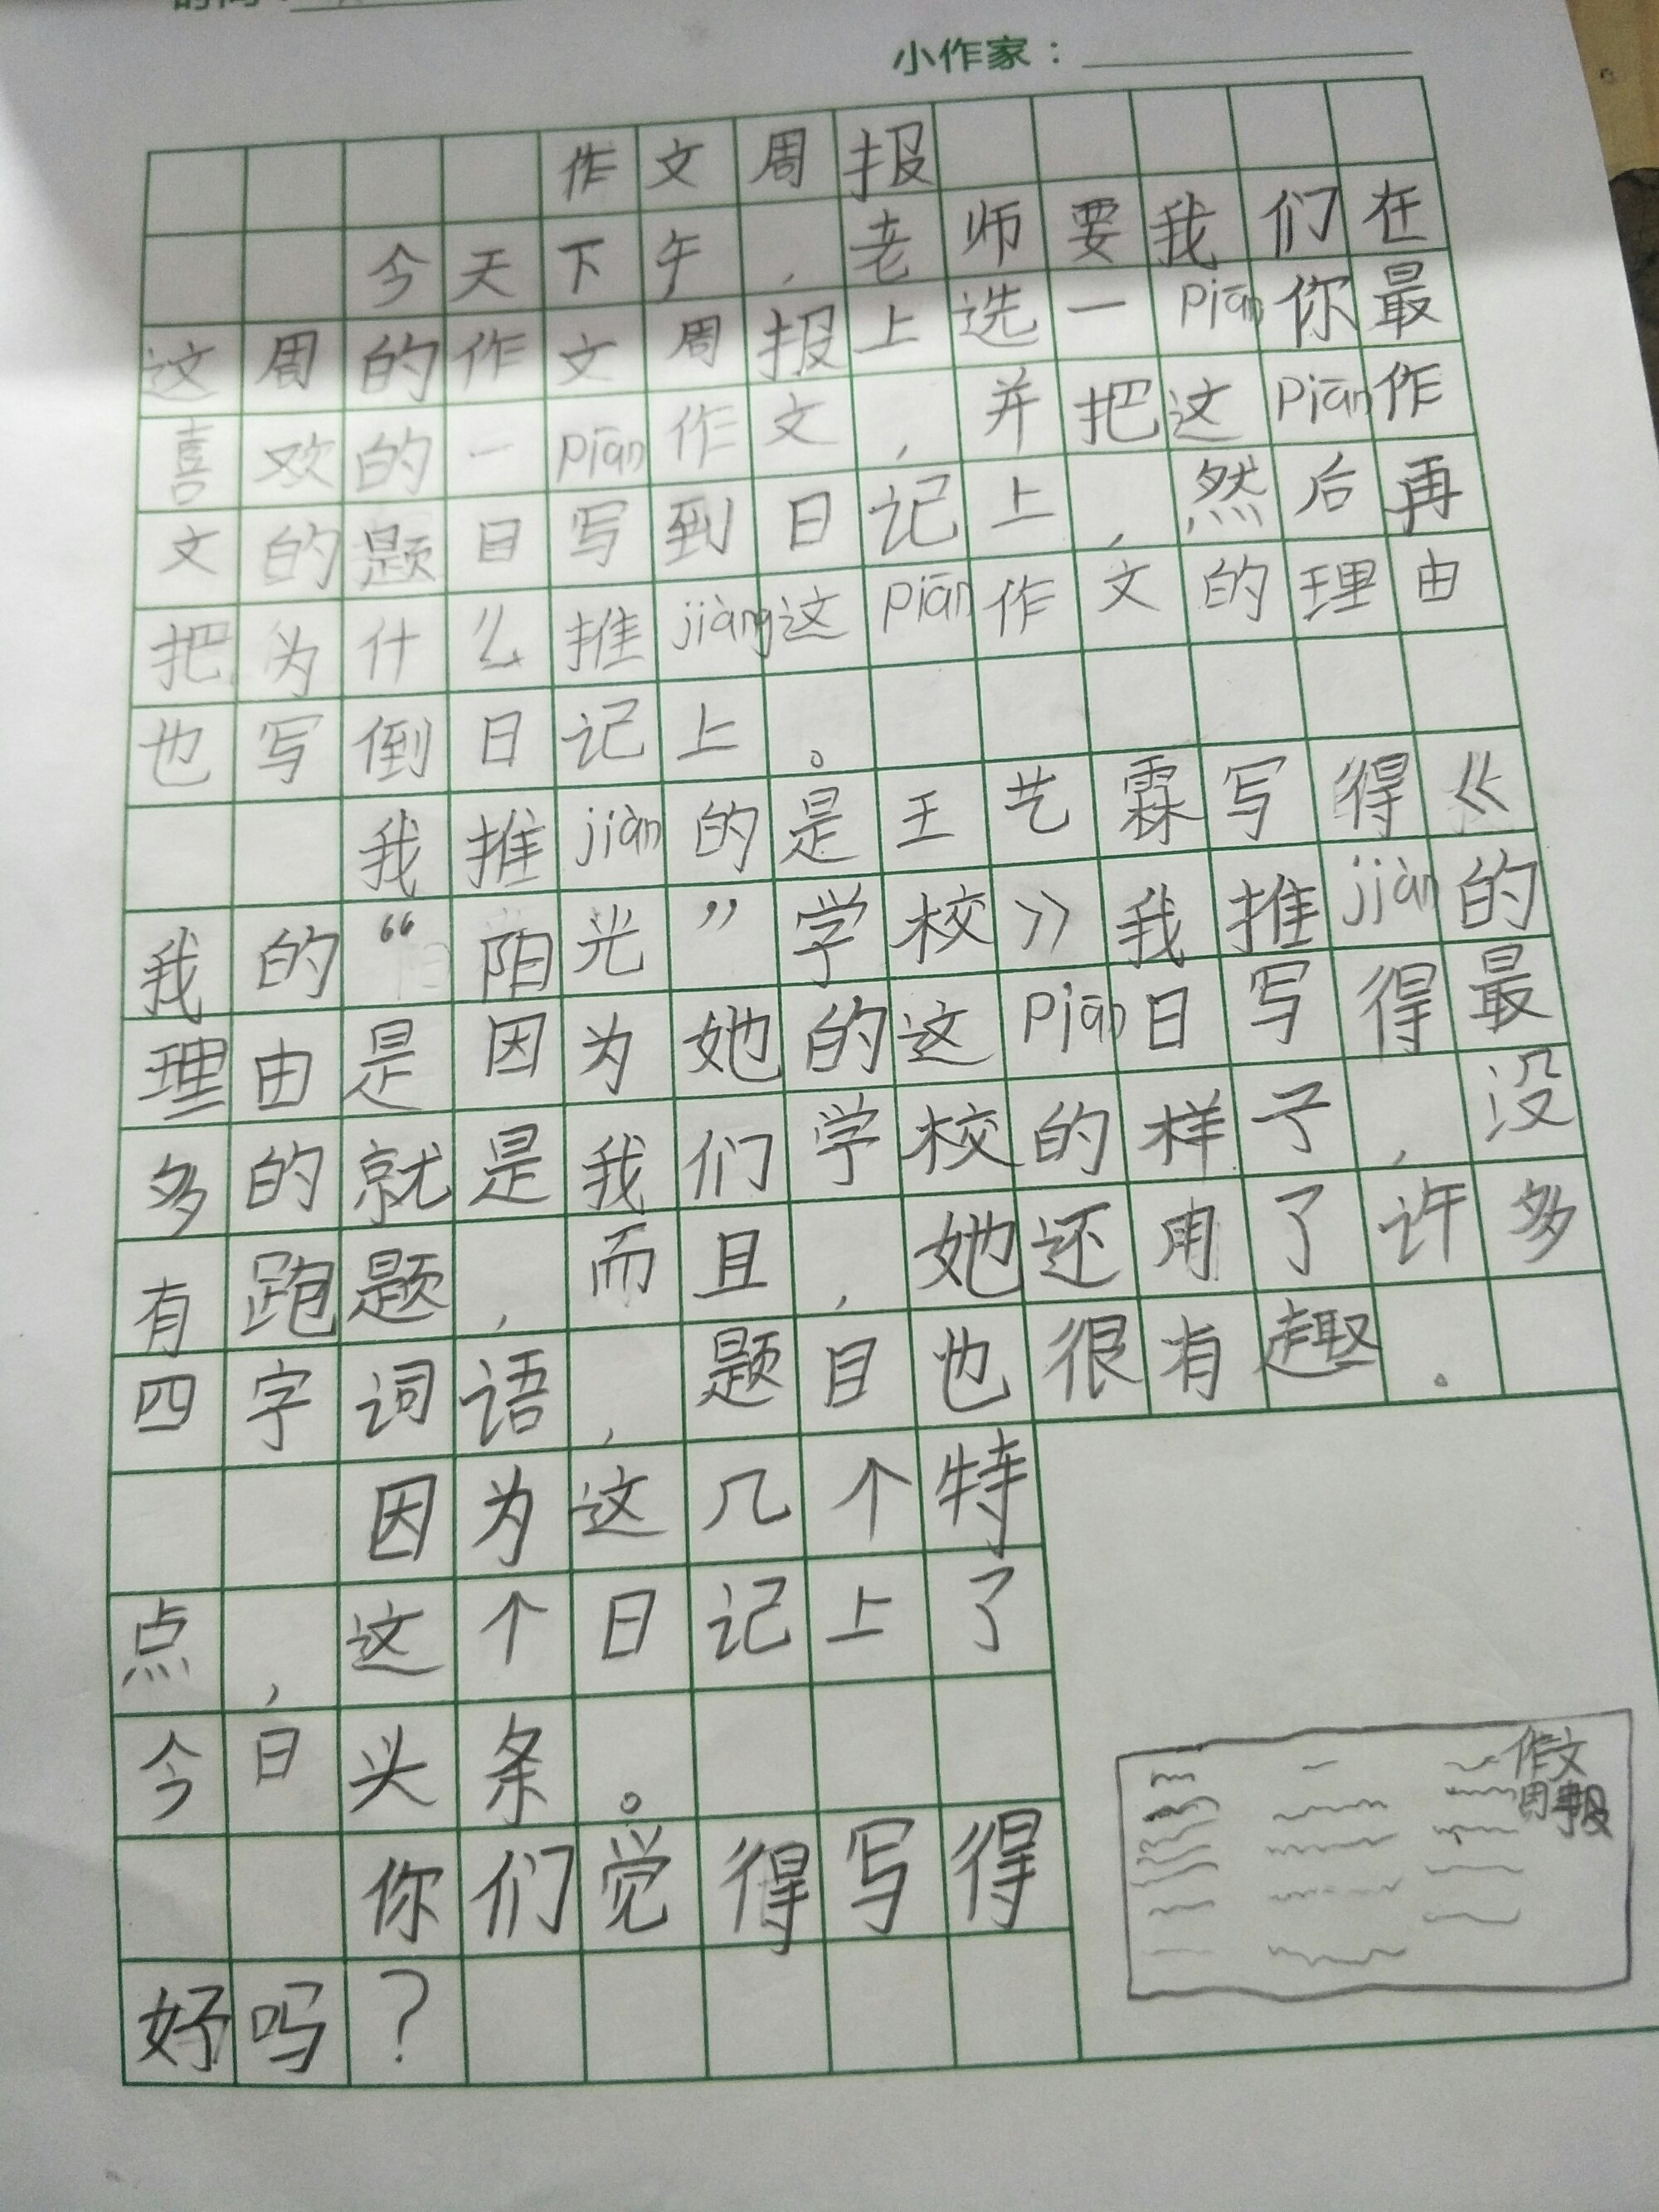 小作家：
作文周报
今天下午，老师要我们在
这周的作文周报上选一piān你最
喜欢的一piān作文，并把这piān作
文的题目写到日记上，然后再
把为什么推jiàng这piān作文的理由
也写倒日记上。
我推jiàn的是王艺霖写得《
我的“阳光”学校》我推jiàn的
理由是因为她的这piān日写得最
多的就是我们学校的样子，没
有跑题，而且，她还用了许多
四字词语，题目也很有趣。
因为这几个特
点，这个日记上了
今日头条。
你们觉得写得
好吗？
作文
周报